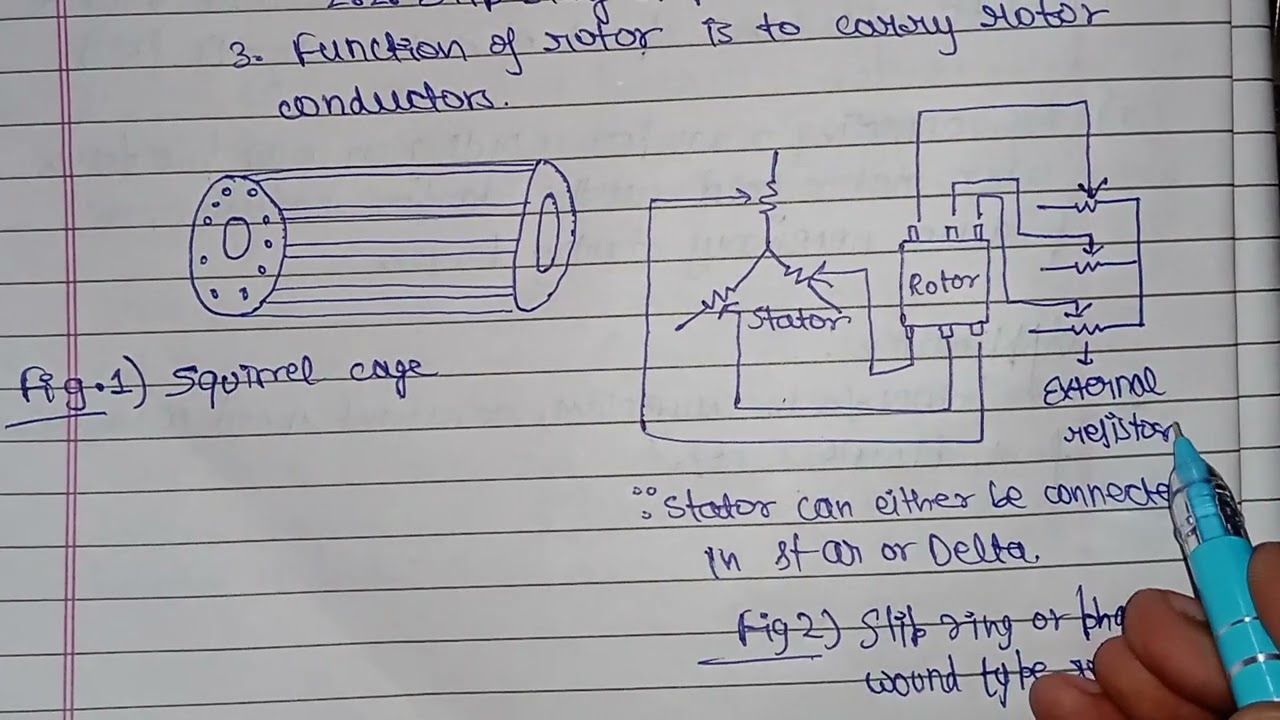 3. Function of rotor is to carry rotor
conductors.
Rotor
Stator
External
resistor
Fig.1) Squirrel cage
Stator can either be connecte
in star or Delta.
Fig 2) Slip ring or pha
wound type